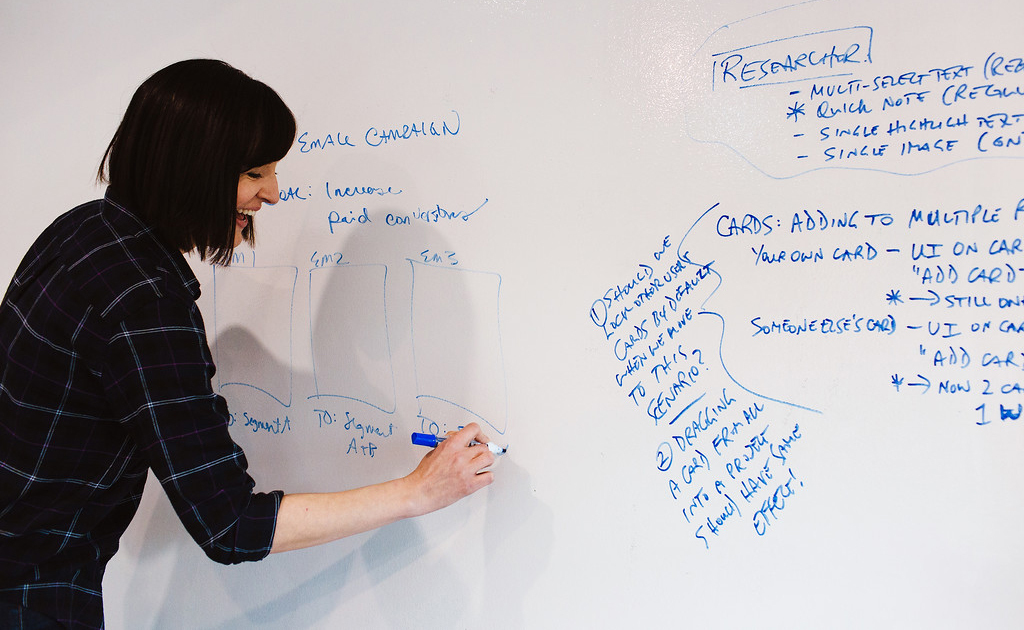 EMAIL CAMPAIGN
Increase
paid conversions
EM2
EM3
Segment A
TO: Segment
A+B
TO:
RESEARCHER
- MULTI-SELECT TEXT (RE
* QUICK NOTE (REGU
- SINGLE HIGHLIGH TEXT
- SINGLE IMAGE (ON
CARDS: ADDING TO MULTIPLE
YOUR OWN CARD - UI ON CAR
"ADD CARD
* → STILL ON
SOMEONE ELSE'S CARD - UI ON CAR
"ADD CAR
* → NOW 2 CA
1 W
① SHOULD WE
LOCK OTHER USERS
CARDS BY DEFAULT
WHEN WE MOVE
TO THIS
SCENARIO?
② DRAGGING
A CARD FROM ALL
INTO A PROJECT
SHOULD HAVE SAME
EFFECT!